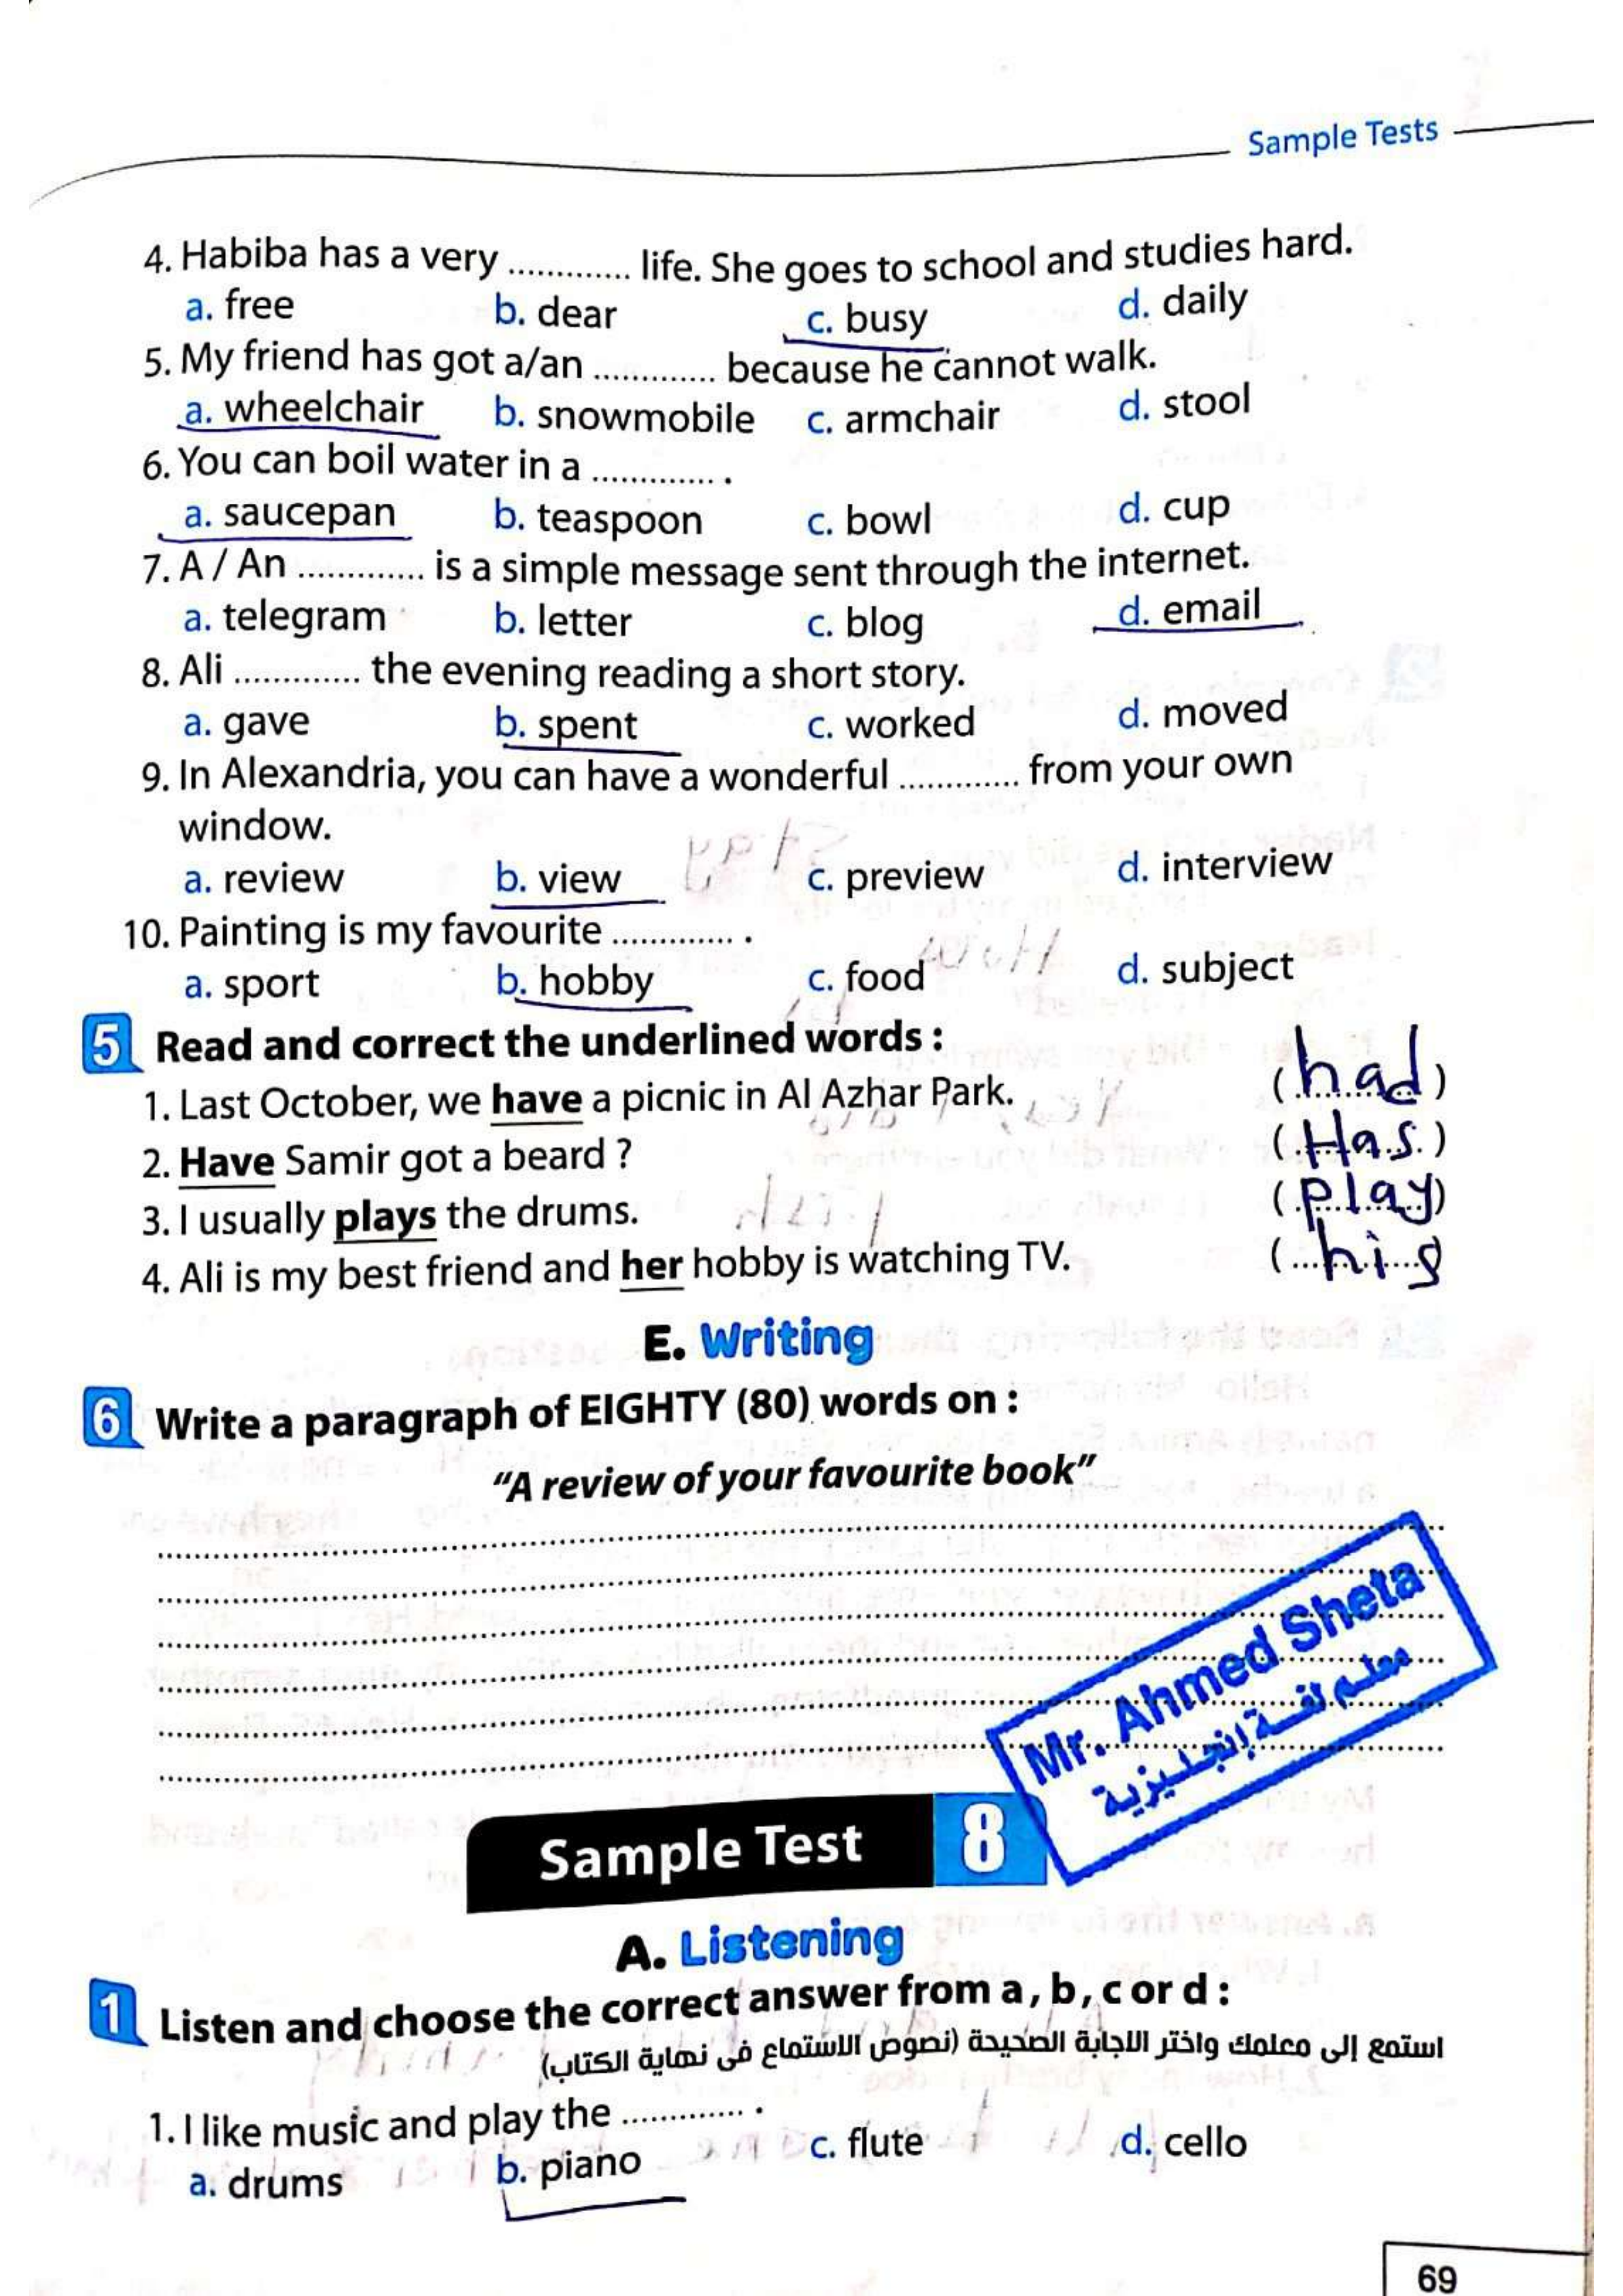 Sample Tests
4. Habiba has a very ............ life. She goes to school and studies hard.
a. free b. dear c. busy d. daily
5. My friend has got a/an ............ because he cannot walk.
a. wheelchair b. snowmobile c. armchair d. stool
6. You can boil water in a ............ .
a. saucepan b. teaspoon c. bowl d. cup
7. A / An ............ is a simple message sent through the internet.
a. telegram b. letter c. blog d. email
8. Ali ............ the evening reading a short story.
a. gave b. spent c. worked d. moved
9. In Alexandria, you can have a wonderful ............ from your own
window.
a. review b. view c. preview d. interview
10. Painting is my favourite ............ .
a. sport b. hobby c. food d. subject
5 Read and correct the underlined words :
1. Last October, we have a picnic in Al Azhar Park. (had)
2. Have Samir got a beard ? (Has)
3. I usually plays the drums. (play)
4. Ali is my best friend and her hobby is watching TV. (his
E. Writing
6 Write a paragraph of EIGHTY (80) words on :
"A review of your favourite book"
Mr. Ahmed Sheta
معلم لغة إنجليزية
Sample Test 8
A. Listening
1 Listen and choose the correct answer from a , b , c or d :
استمع إلى معلمك واختر الاجابة الصحيحة (نصوص الاستماع فى نهاية الكتاب)
1. I like music and play the ............ .
a. drums b. piano c. flute d. cello
69